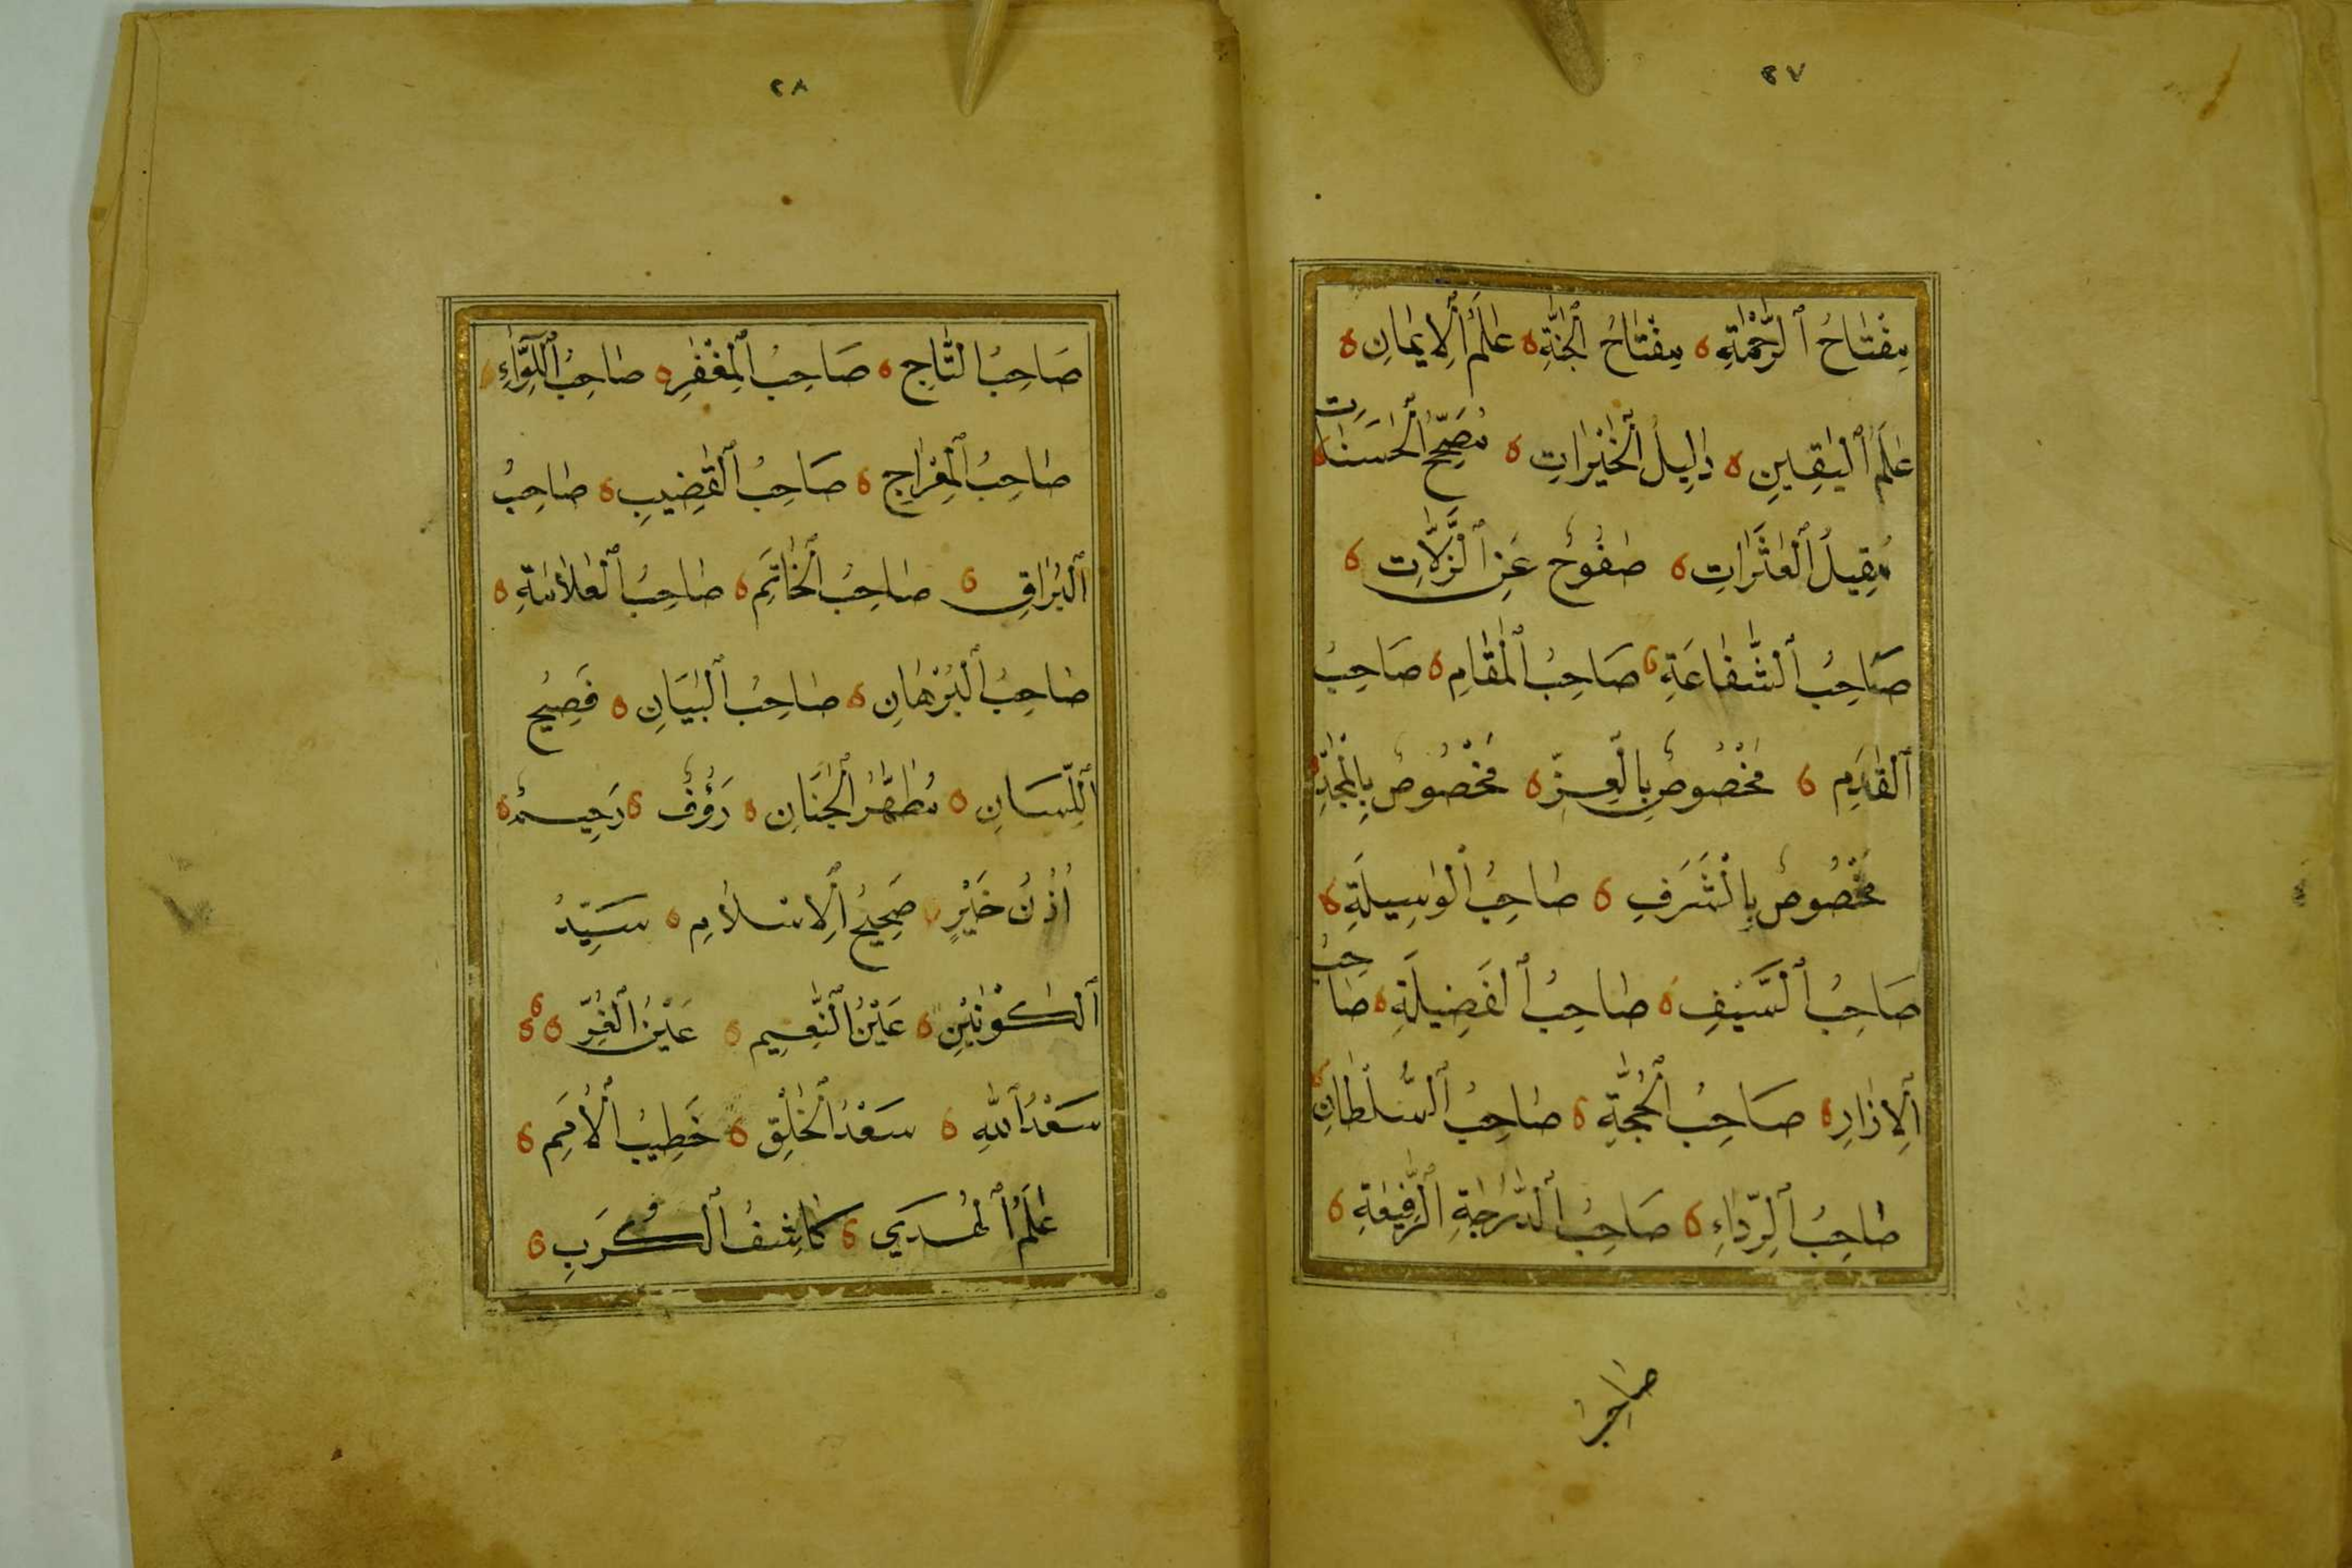 ٢٧
مِفْتَاحُ ٱلرَّحْمَةِ مِفْتَاحُ ٱلْجَنَّةِ عَلَمُ ٱلْإِيمَانِ
عَلَمُ ٱلْيَقِينِ دَلِيلُ ٱلْخَيْرَاتِ مُصَحِّحُ ٱلْحَسَنَاتِ
مُقِيلُ ٱلْعَثَرَاتِ صَفُوحٌ عَنِ ٱلزَّلَّاتِ
صَاحِبُ ٱلشَّفَاعَةِ صَاحِبُ ٱلْمَقَامِ صَاحِبُ
ٱلْقَدَمِ مَخْصُوصٌ بِالْعِزِّ مَخْصُوصٌ بِالْمَجْدِ
مَخْصُوصٌ بِالشَّرَفِ صَاحِبُ ٱلْوَسِيلَةِ
صَاحِبُ ٱلسَّيْفِ صَاحِبُ ٱلْفَضِيلَةِ صَاحِبُ
ٱلْإِزَارِ صَاحِبُ ٱلْحُجَّةِ صَاحِبُ ٱلسُّلْطَانِ
صَاحِبُ ٱلرِّدَاءِ صَاحِبُ ٱلدَّرَجَةِ ٱلرَّفِيعَةِ
صاحب
٢٨
صَاحِبُ التَّاجِ صَاحِبُ ٱلْمِغْفَرِ صَاحِبُ ٱللِّوَآءِ
صَاحِبُ ٱلْمِعْرَاجِ صَاحِبُ ٱلْقَضِيبِ صَاحِبُ
ٱلْبُرَاقِ صَاحِبُ ٱلْخَاتَمِ صَاحِبُ ٱلْعَلَامَةِ
صَاحِبُ ٱلْبُرْهَانِ صَاحِبُ ٱلْبَيَانِ فَصِيحُ
ٱللِّسَانِ مُطَهَّرُ ٱلْجَنَانِ رَؤُفٌ رَحِيمٌ
أُذُنُ خَيْرٍ صَحِيحُ ٱلْإِسْلَامِ سَيِّدُ
ٱلْكَوْنَيْنِ عَيْنُ ٱلنَّعِيمِ عَيْنُ ٱلْغُرِّ
سَعْدُ ٱللهِ سَعْدُ ٱلْخَلْقِ خَطِيبُ ٱلْأُمَمِ
عَلَمُ ٱلْهُدَي كَاشِفُ ٱلْكُرَبِ